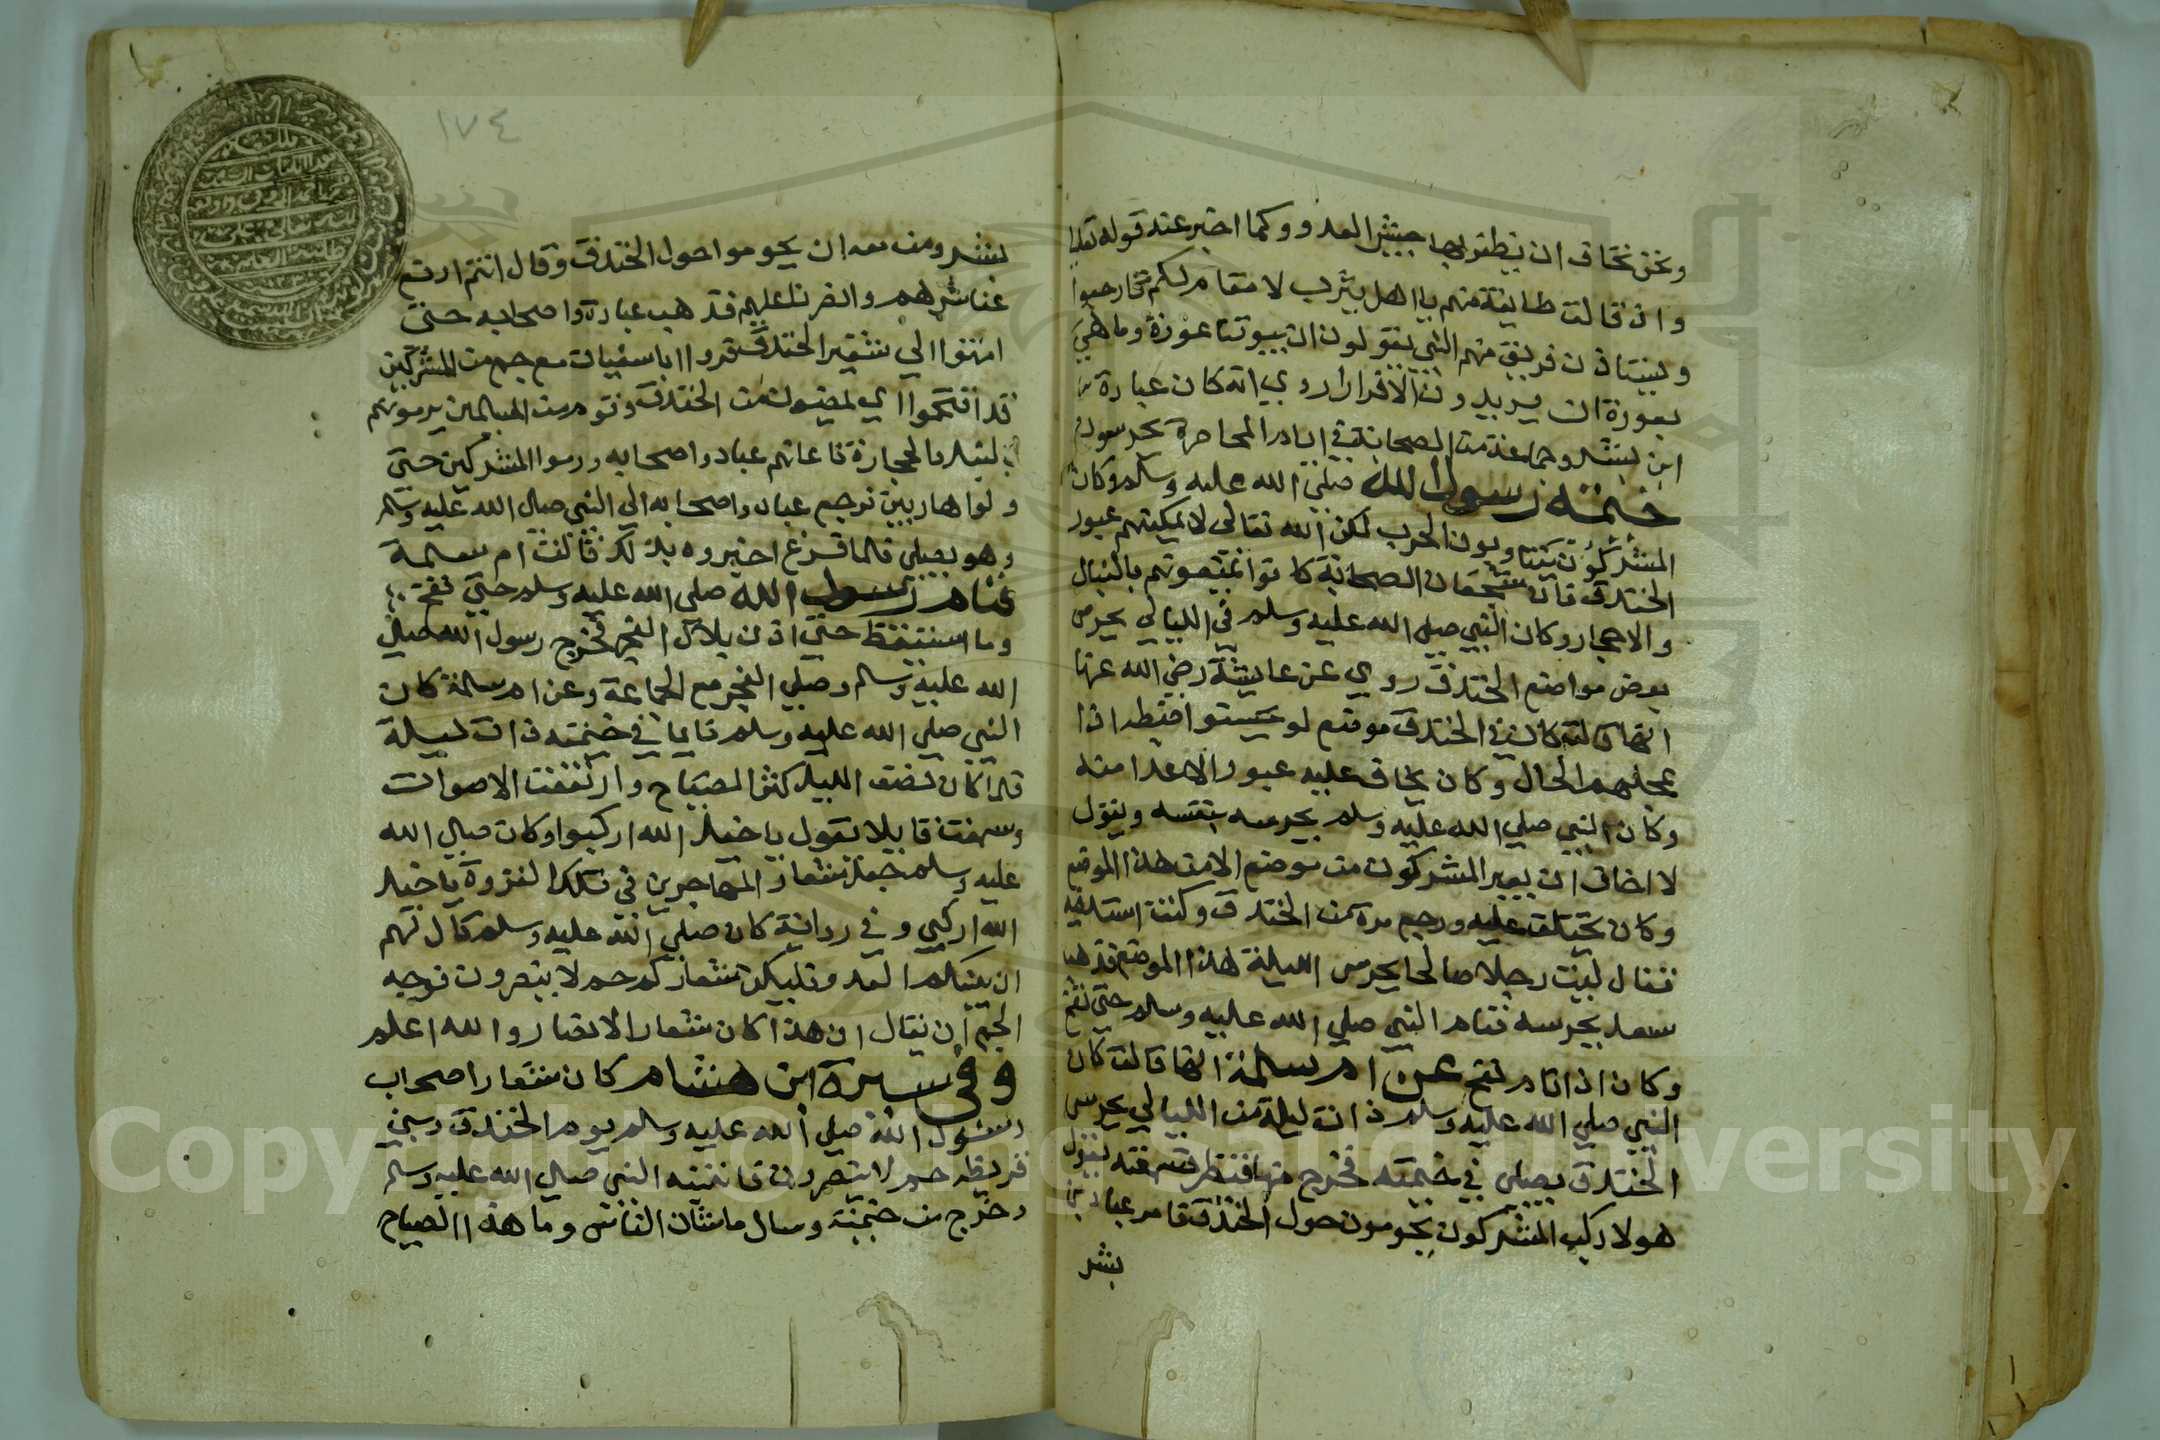 ونحن نخاف ان يظفر بها جيش العدو وكما اخبر عنه قوله تعالى
واذ قالت طايفة منهم يا اهل يثرب لا مقام لكم فارجعوا
ويستاذن فريق منهم النبي يقولون ان بيوتنا عورة وما هي
بعورة ان يريدون الا فرارا روي انه كان عبادة
ابن بشر وجماعة من الصحابة في ايام المحاصرة يحرسون
خيمة رسول الله صلي الله عليه وسلم وكان
المشركون يتناوبون الحرب لكن الله تعالى لا يمكنهم عبور
الخندق فان شجعان الصحابة كانوا يمنعونهم بالنبال
والاحجار وكان النبي صلي الله عليه وسلم في الليالي يحرس
بعض مواضع الخندق روي عن عايشة رضي الله عنها
انها قالت كان في الخندق موضع لم اذا
عجلهم الحال وكان يخاف عليه عبور الاعدا منه
وكان النبي صلي الله عليه وسلم يحرسه بنفسه ويقول
لا اخاف ان يعبر المشركون من موضع الا من هذا الموضع
وكان يختلف عليه ورجع مرة من الخندق وكنت
فقال ليت رجلا صالحا يحرس الليلة هذا الموضع فذهب
سعد يحرسه فنام النبي صلي الله عليه وسلم حتي نفخ
وكان اذا نام نفخ عن ام سلمة انها قالت كان
النبي صلي الله عليه وسلم ذات ليلة من الليالي يحرس
الخندق يصلي في خيمته فخرج منها فنظر فسمعته يقول
هولا ركب المشركون يحومون حول الخندق قام عباد بن
بشر
١٧٤
بشر ومن معه ان يحوموا حول الخندق وقال انتم ادفع
عنا شرهم وانصرنا عليهم فذهب عبادة واصحابه حتى
انتهوا الي شفير الخندق فروا ابا سفيان مع جمع من المشركين
قد اقتحموا اي لمضيق من الخندق وقوم من المسلمين يرمونهم
بالنبل والحجارة فاعانهم عباد واصحابه ورموا المشركين حتى
ولوا هاربين فرجع عباد واصحابه الي النبي صلي الله عليه وسلم
وهو يصلي فلما فرغ اخبروه بذلك فقالت ام سلمة
فنام رسول الله صلي الله عليه وسلم حتى نفخ
وما استيقظ حتى اذن بلال الفجر فخرج رسول الله صلي
الله عليه وسلم وصلي الفجر مع الجماعة وعن ام سلمة كان
النبي صلي الله عليه وسلم نايما في خيمته ذات ليلة
فلما كان نصف الليل كثر الصياح وارتفعت الاصوات
وسمعت قايلا يقول يا خيل الله اركبوا وكان صلي الله
عليه وسلم جعل شعار المهاجرين في تلك الغزوة يا خيل
الله اركبي وفي رواية كان صلي الله عليه وسلم قال لهم
ان العدو فليكن شعاركم حم لا ينصرون توجيه
الجمع ان يقال ان هذا كان شعار الانصار والله اعلم
وفي سيرة ابن هشام كان شعار اصحاب
رسول الله صلي الله عليه وسلم يوم الخندق وبني
قريظة حم لا ينصرون فانتبه النبي صلي الله عليه وسلم
وخرج من خيمته وسال ما شان الناس وما هذا الصياح
Copyright © King Saud University